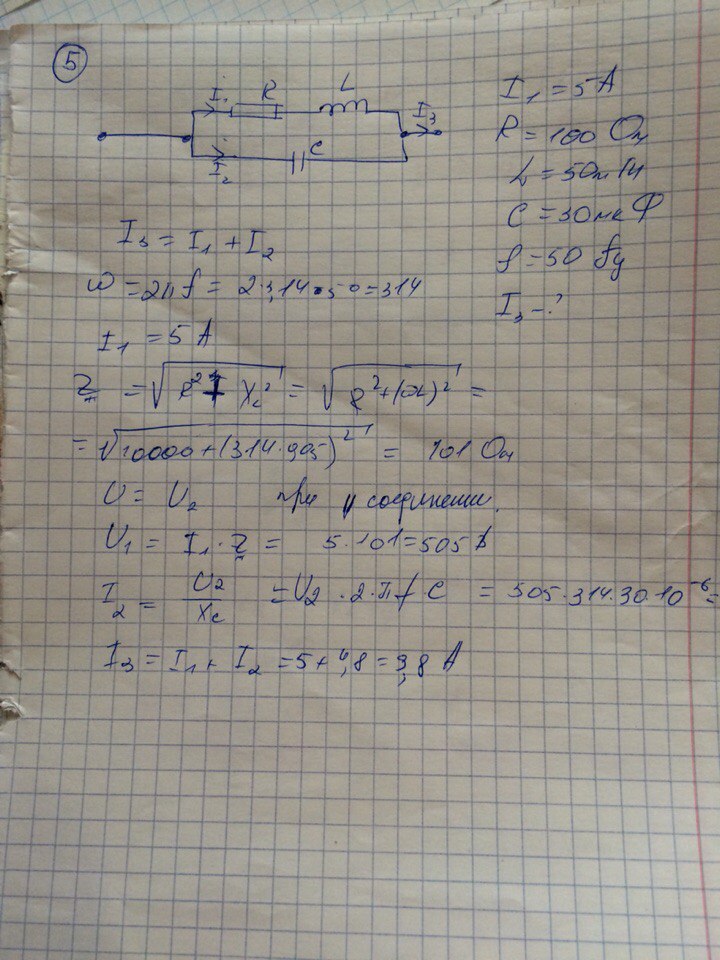 5
I₁ R L I₃
I₂ C
I₁ = 5 А
R = 100 Ом
L = 50 мГн
C = 30 мкФ
f = 50 Гц
I₃ - ?
I₃ = I₁ + I₂
ω = 2πf = 2·3,14·50 = 314
I₁ = 5 А
Z = √(R² + X_L²) = √(R² + (ωL)²) =
= √(10000 + (314·0,05)²) = 101 Ом
U = U₂ при || соединении.
U₁ = I₁ · Z = 5·101 = 505 В
I₂ = U₂/Xc = U₂ · 2·π f C = 505·314·30·10⁻⁶ =
I₃ = I₁ + I₂ = 5 + 4,8 = 9,8 А